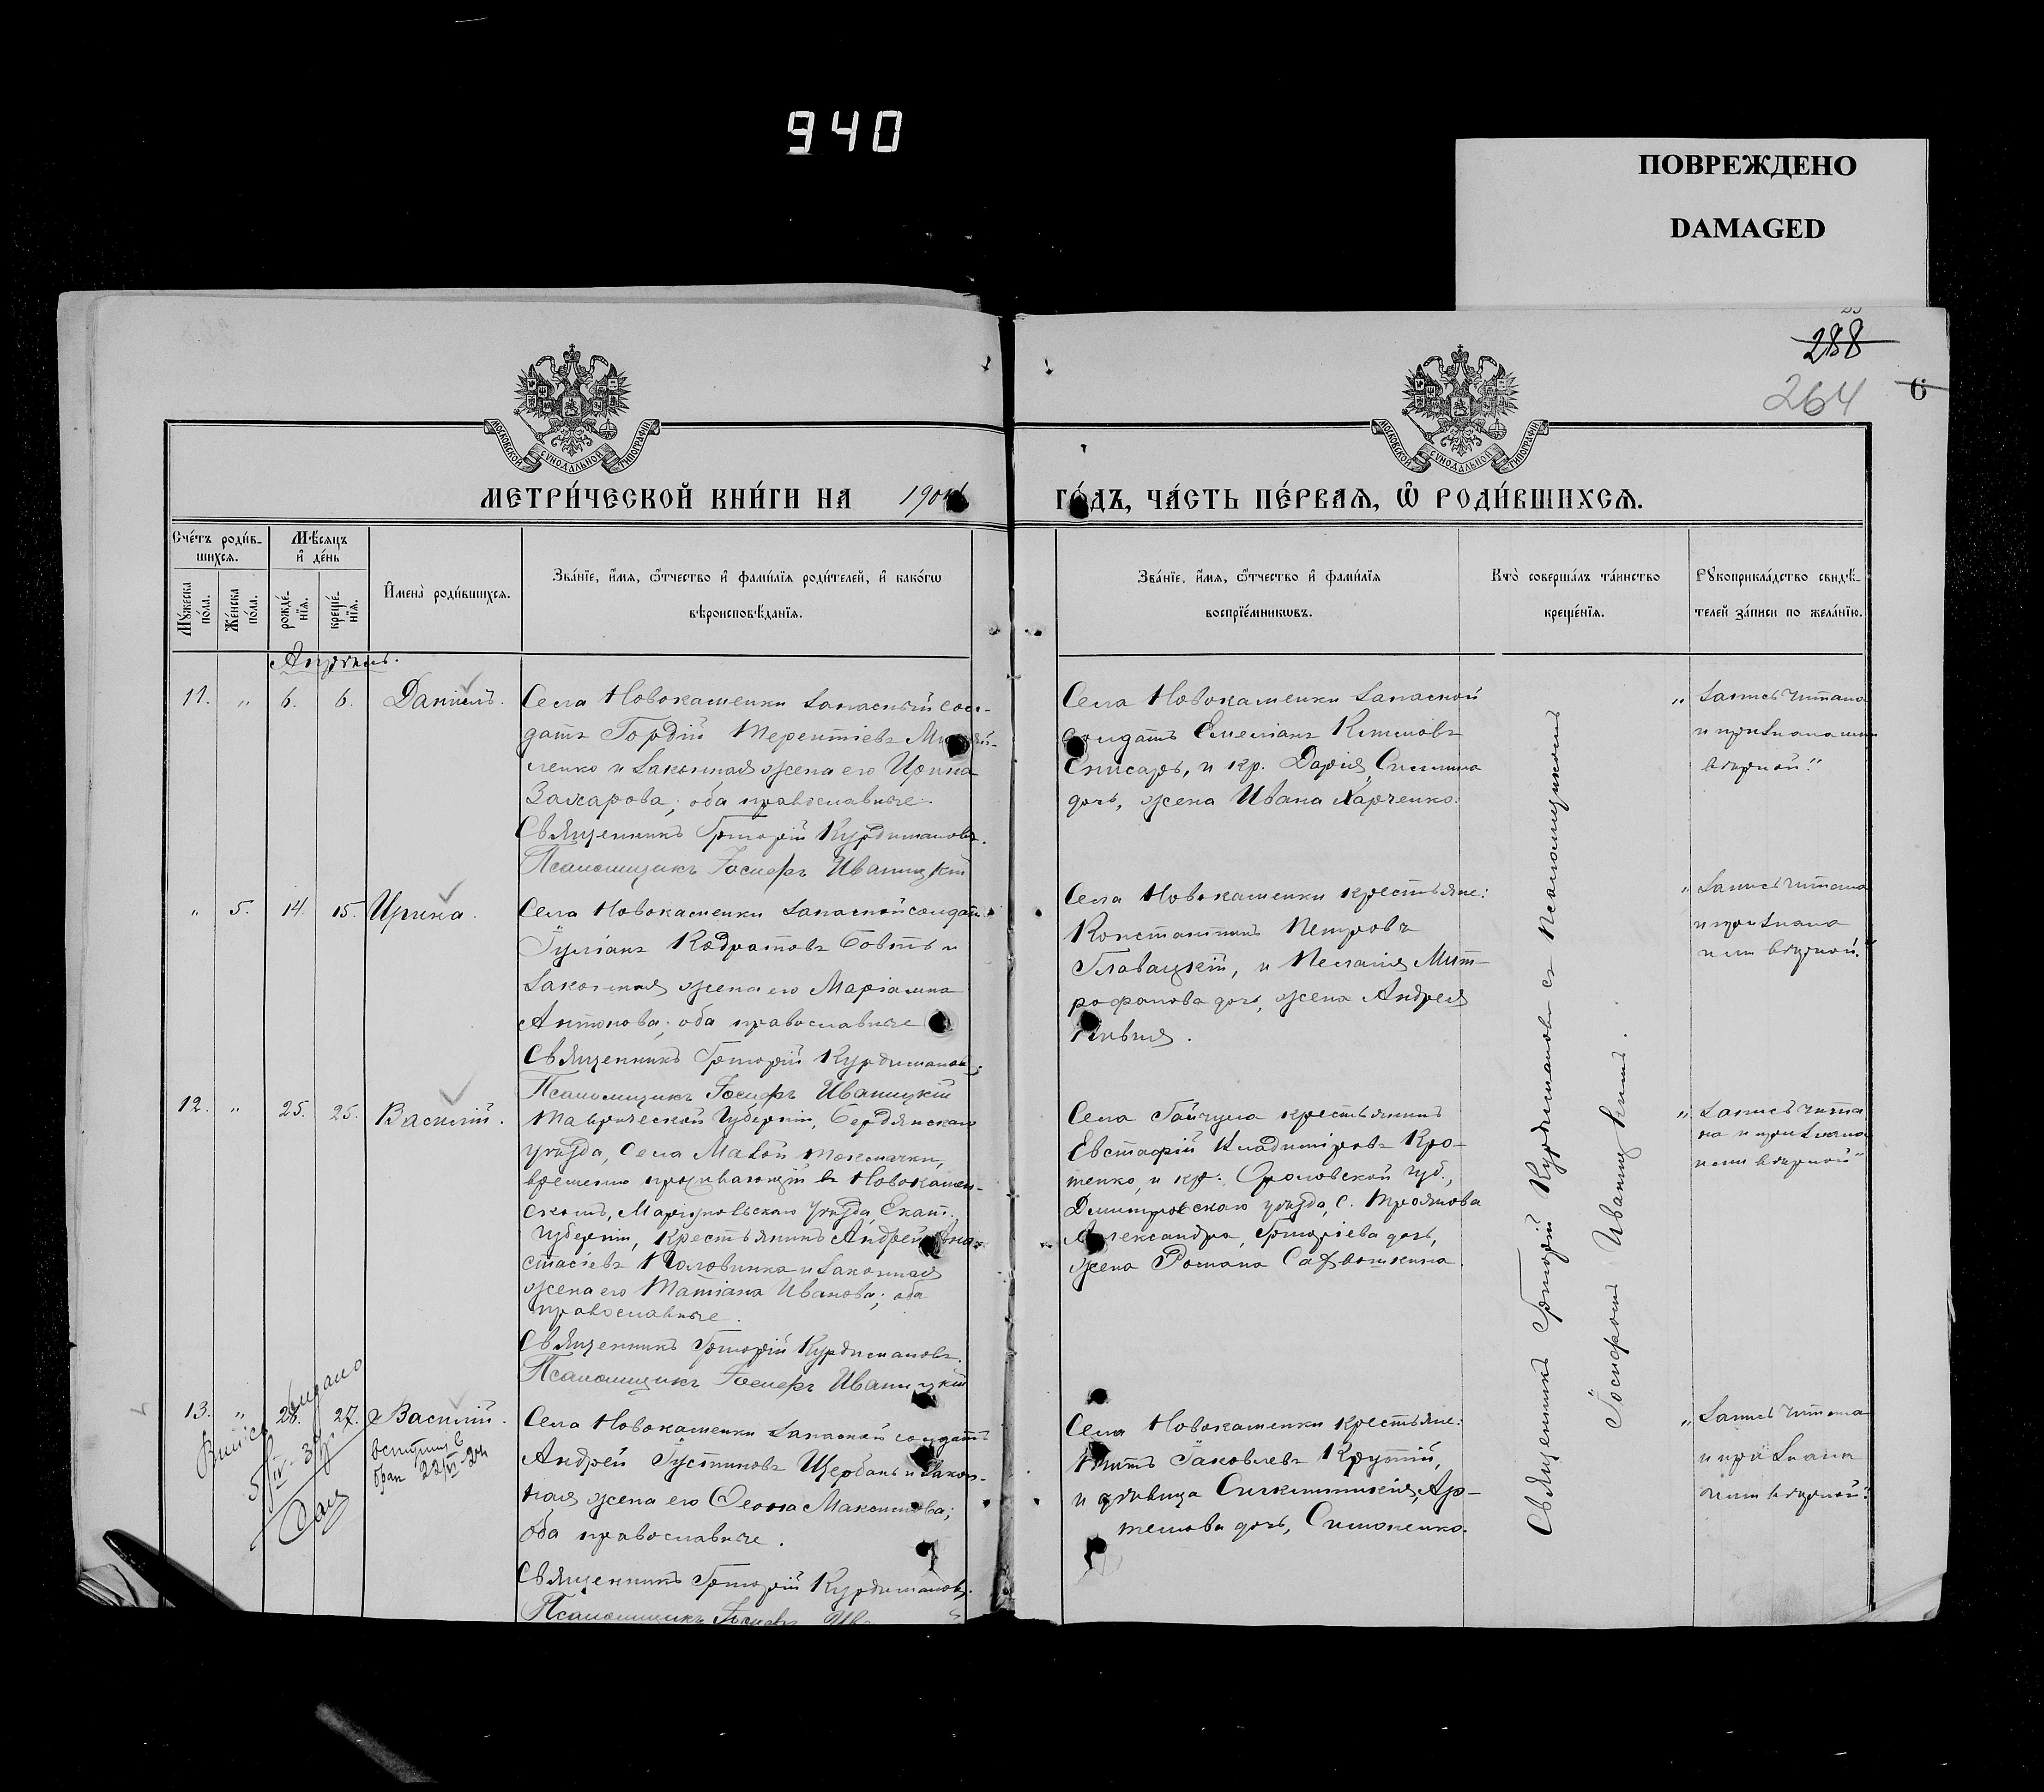 940
ПОВРЕЖДЕНО
DAMAGED
288
264
6
МОСКОВСКОЙ СУНОДАЛЬНОЙ ТИПОГРАФІИ
МОСКОВСКОЙ СУНОДАЛЬНОЙ ТИПОГРАФІИ
МЕТРИ́ЧЕСКОЙ КНИ́ГИ НА 190
ГО́ДЪ, ЧА́СТЬ ПЕ́РВАѦ, Ѡ҆ РОДИ́ВШИХСѦ.
Сче́тъ роди́в-
шихсѧ.
Мѣ́сѧцъ
и҆ де́нь
Мꙋ́жеска
по́ла.
Же́нска
по́ла.
рожде́-
нїѧ.
креще́-
нїѧ.
И҆мена̀ роди́вшихсѧ.
Зва́нїе, и҆́мѧ, ѻ҆́тчество и҆ фами́лїѧ роди́телей, и҆ како́гѡ
вѣроисповѣ́данїѧ.
Зва́нїе, и҆́мѧ, ѻ҆́тчество и҆ фами́лїѧ
воспрїе́мникѡвъ.
Кто̀ соверша́лъ та́инство
креще́нїѧ.
Рꙋкоприкла́дство свидѣ́-
телей за́писи по жела́нїю.
Апрѣль.
11. " 6. 6. Даніилъ.
Села Новокаменки запасный сол-
датъ Гордій Терентіевъ
ленко и законная жена его Ирина
Захарова; оба православные.
Священникъ Григорій Курдимановъ.
Псаломщикъ Іосифъ Иваницкій
Села Новокаменки запасной
солдатъ Емеліанъ Климовъ
Снисарь, и кр. Дарія
дочь, жена Ивана Харченко.
" Запись читана
и признана нами
вѣрной."
" 5. 14. 15. Ирина.
Села Новокаменки запасной солдатъ
Іуліанъ Кодратовъ Бовтъ и
законная жена его Маріамна
Антонова; оба православные
Священникъ Григорій Курдимановъ.
Псаломщикъ Іосифъ Иваницкій
Села Новокаменки крестьяне:
Константинъ Петровъ
Главацкій, и Пелагія Мит-
рофанова дочь, жена Андрея
" Запись читана
и признана
нами вѣрной."
12. " 25. 25. Василій.
Таврической Губерніи, Бердянскаго
уѣзда, Села Малой Токмачки,
временно проживающій въ Новокамен-
скомъ, Маріупольскаго уѣзда, Екат.
Губерніи, крестьянинъ Андрей Ана-
стасіевъ Половинка и законная
жена его Татіана Иванова; оба
православные.
Священникъ Григорій Курдимановъ.
Псаломщикъ Іосифъ Иваницкій
Села Гайчула крестьянинъ
Евстафій Владиміровъ Кро-
тенко, и кр. Орловской губ.,
Дмитровскаго уѣзда, с. Троянова
Александра, Григоріева дочь,
жена Романа
" Запись чита
на и признана
нами вѣрной"
13. " 26. 27. Василій.
Села Новокаменки запасной солдатъ
Андрей Іустиновъ Щербань и закон-
ная жена его Ѳеона Максимова;
оба православные.
Священникъ Григорій Курдимановъ.
Псаломщикъ Іосифъ
Села Новокаменки крестьяне:
Титъ Іаковлевъ Крутій,
и дѣвица Синклитикія, Ар-
темова дочь, Симоненко.
" Запись читана
и призвана
нами вѣрной."
вступив в
брак 22/VI
Священникъ Григорій Курдимановъ съ Псаломщикомъ
Іосифомъ Иваницкимъ.